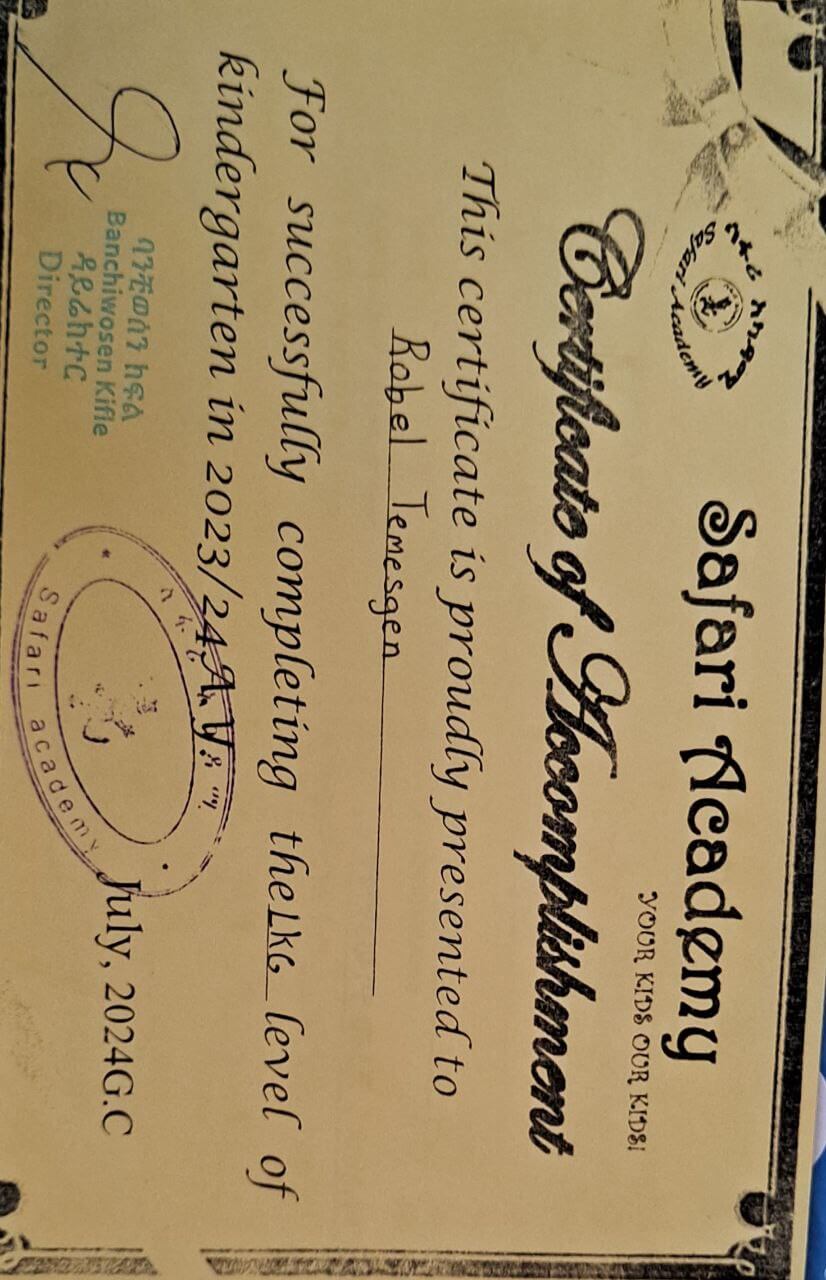 ሳፋሪ አካዳሚ
Safari Academy
Safari Academy
YOUR KIDS OUR KIDS!
Certificate of Accomplishment
This certificate is proudly presented to
Robel Temesgen
For successfully completing the LKG level of
kindergarten in 2023/24 A.Y.
ባንቺወሰን ክፍል
Banchiwosen Kifle
ዳይሬክተር
Director
ሳፋሪ አካዳሚ
Safari academy
July, 2024G.C